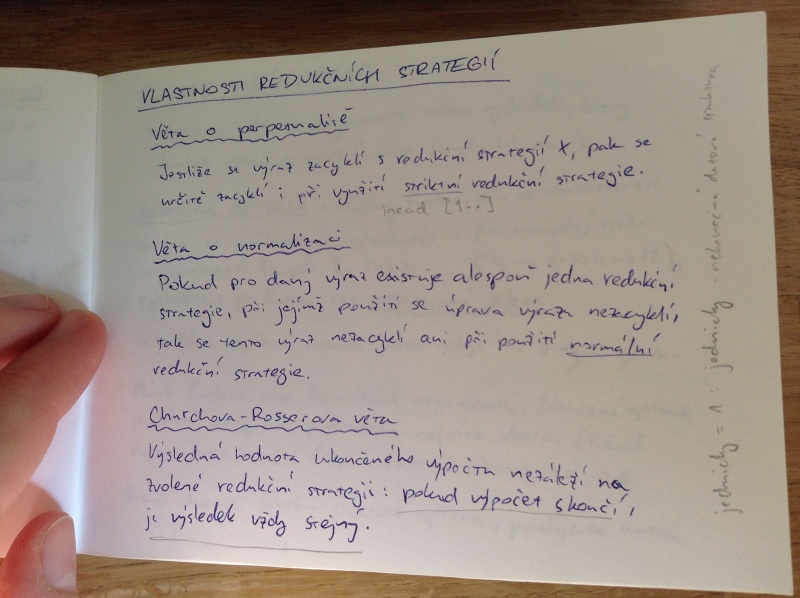 VLASTNOSTI REDUKČNÍCH STRATEGIÍ
Věta o perpetualitě
Jestliže se výraz zacyklí s redukční strategií X, pak se
určitě zacyklí i při využití striktní redukční strategie.
head [1..]
Věta o normalizaci
Pokud pro daný výraz existuje alespoň jedna redukční
strategie, při jejímž použití se úprava výrazu nezacyklí,
tak se tento výraz nezacyklí ani při použití normální
redukční strategie.
Churchova-Rosserova věta
Výsledná hodnota ukončeného výpočtu nezáleží na
zvolené redukční strategii: pokud výpočet skončí,
je výsledek vždy stejný.
jednicky = 1 : jednicky - nekonečná datová struktura